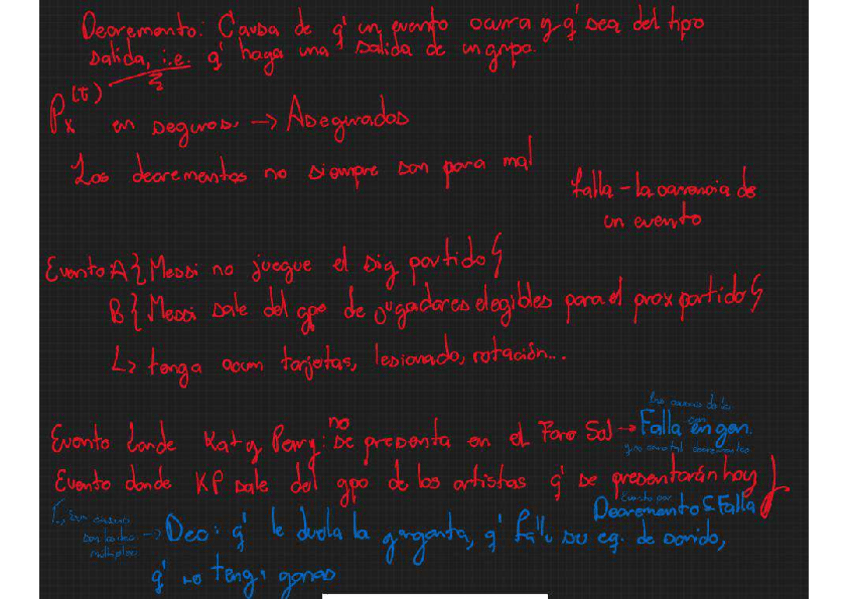 Decremento: Causa de q' un evento ocurra y q' sea del tipo
salida, i.e. q' haga una salida de un grupo.
Px(τ) en seguros. → Asegurados
Los decrementos no siempre son para mal
falla - la ocurrencia de
un evento
Evento A { Messi no juegue el sig partido }
B { Messi sale del gpo de jugadores elegibles para el prox partido }
↳ tenga acum tarjetas, lesionado, rotación...
Evento donde Katy Perry: no se presenta en el Foro Sol → Falla en gen.
Evento donde KP sale del gpo de los artistas q' se presentarán hoy }
Decremento ⊆ Falla
→ Dec: q' le duela la garganta, q' falle su eq. de sonido,
q' no tenga ganas